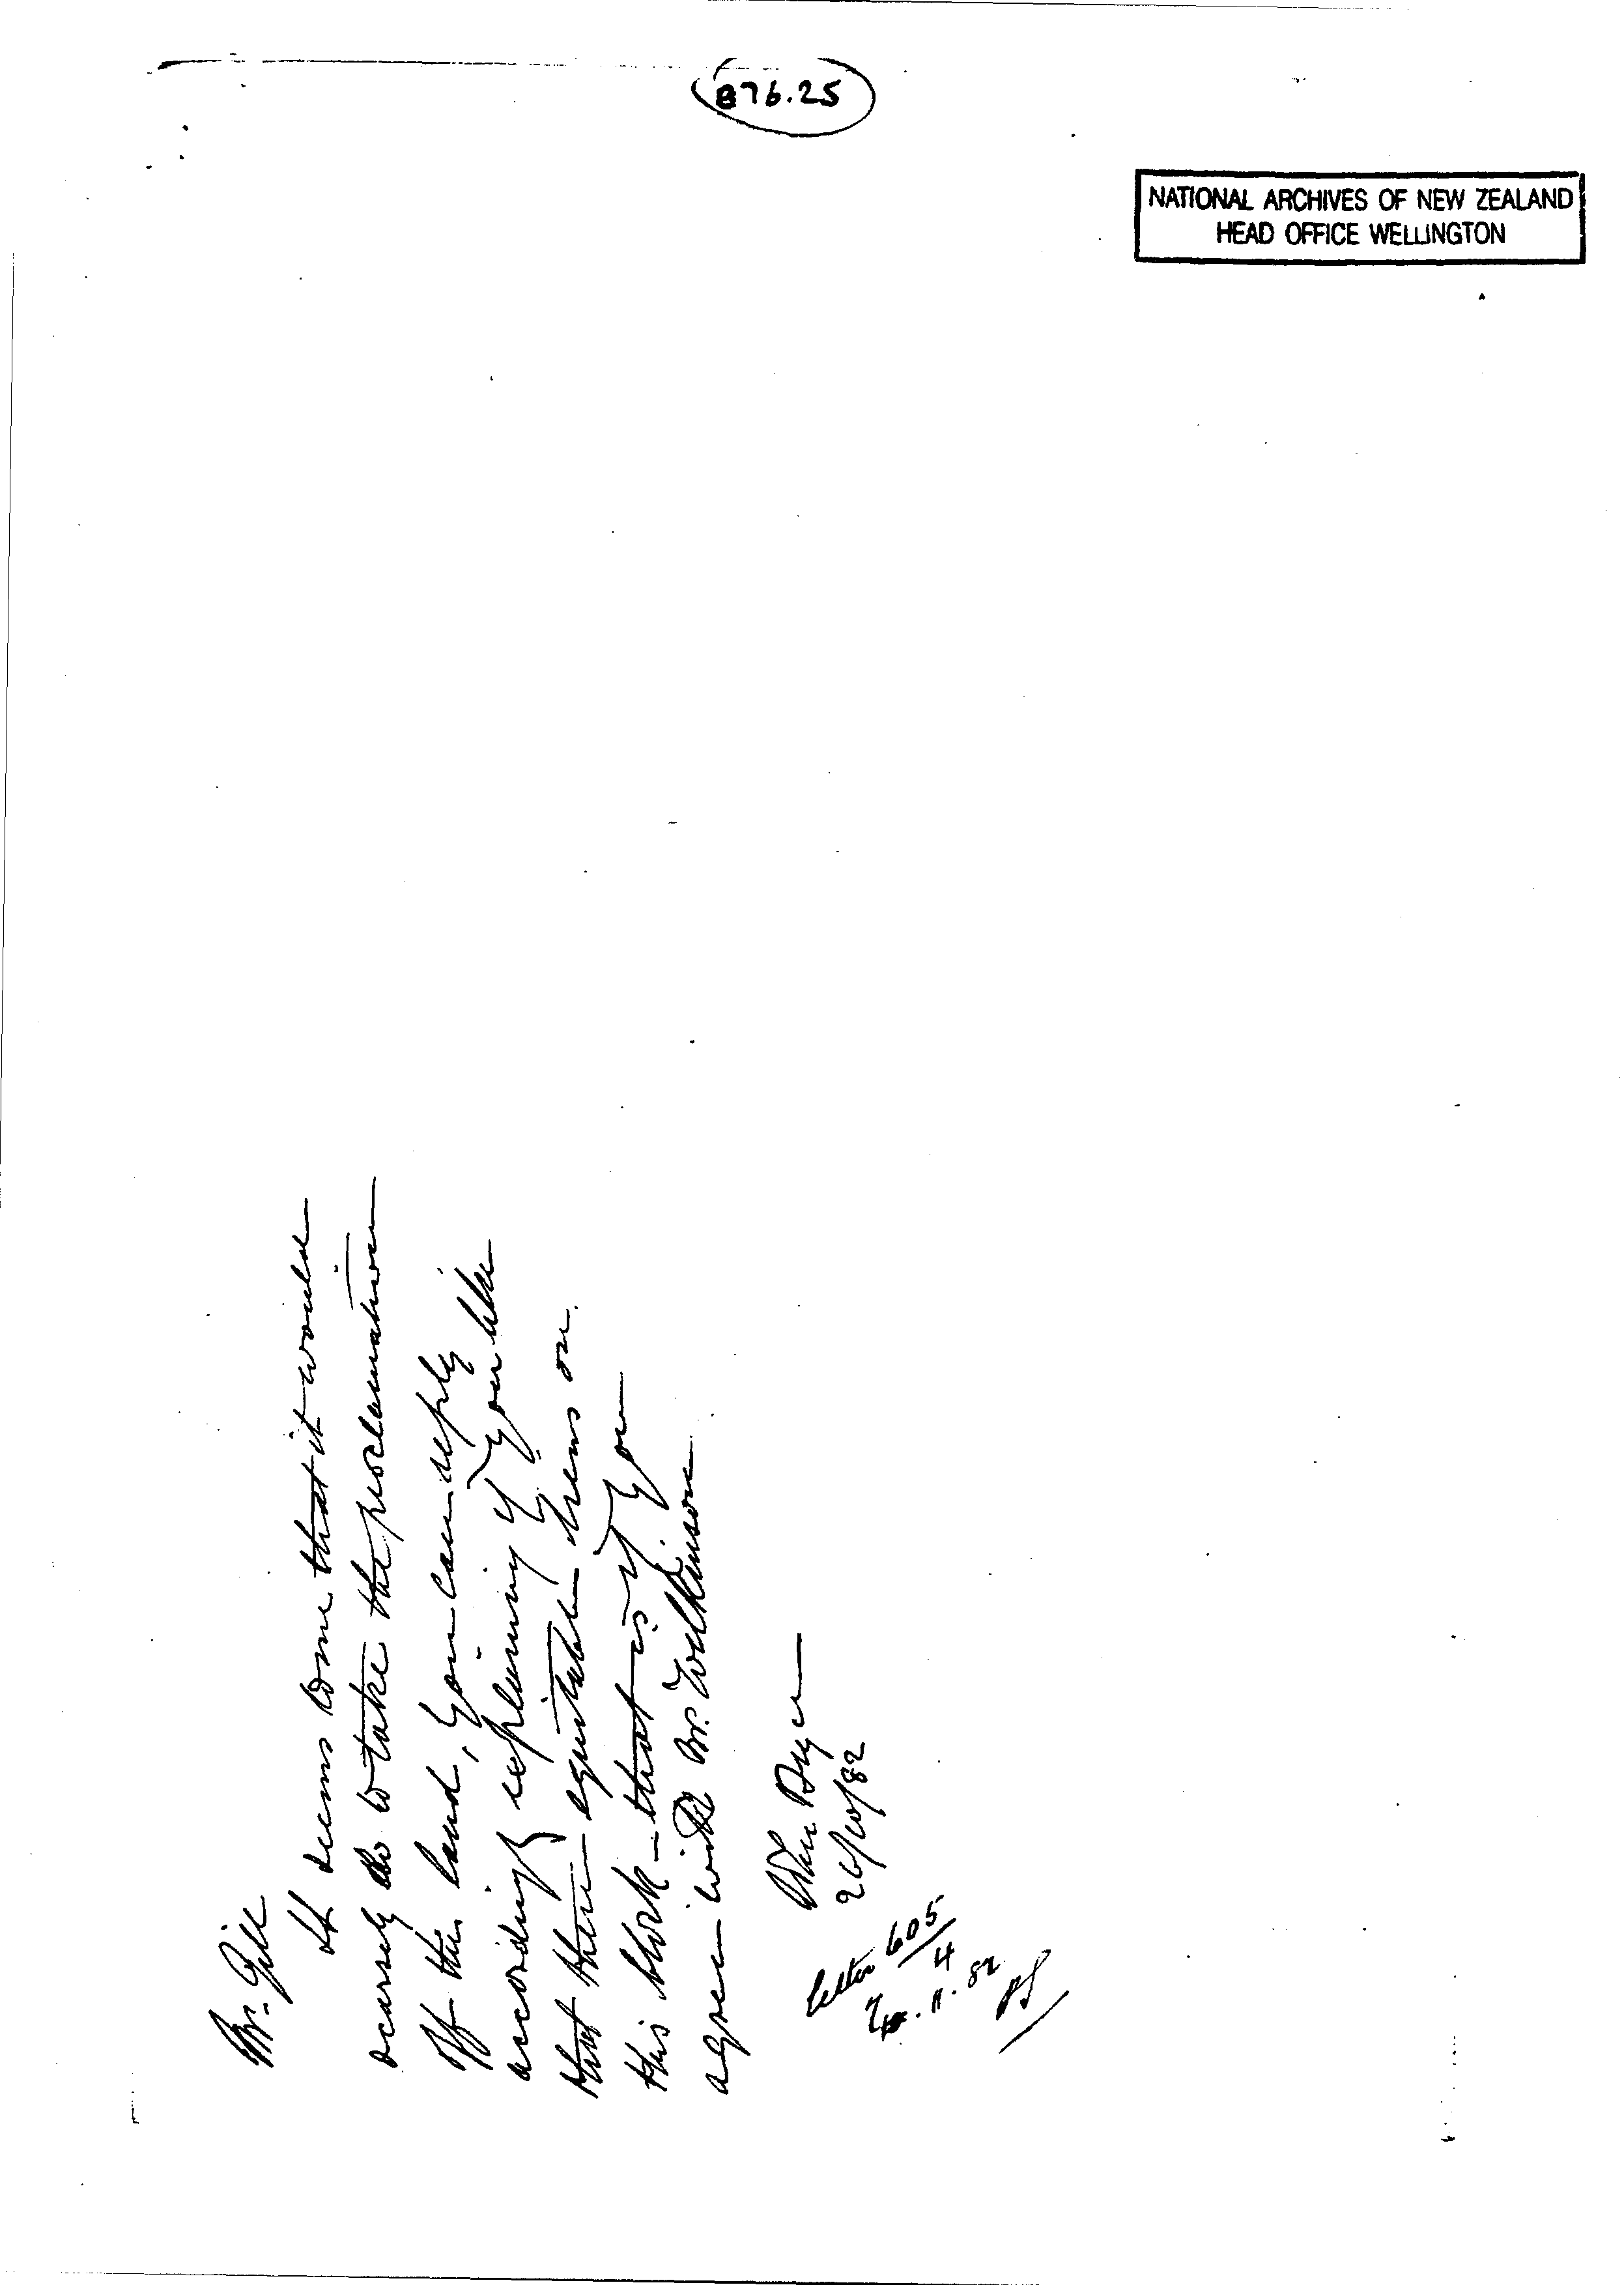 876.25
NATIONAL ARCHIVES OF NEW ZEALAND
HEAD OFFICE WELLINGTON
Mr. Gill
It seems to me that it would
scarcely do to take the proclamation
off the land, you can reply
accordingly explaining if you like
that there equitable liens on
this block – that is if you
agree with Mr. Wilkinson
Bryce
26/10/82
letter 605/4
11.82